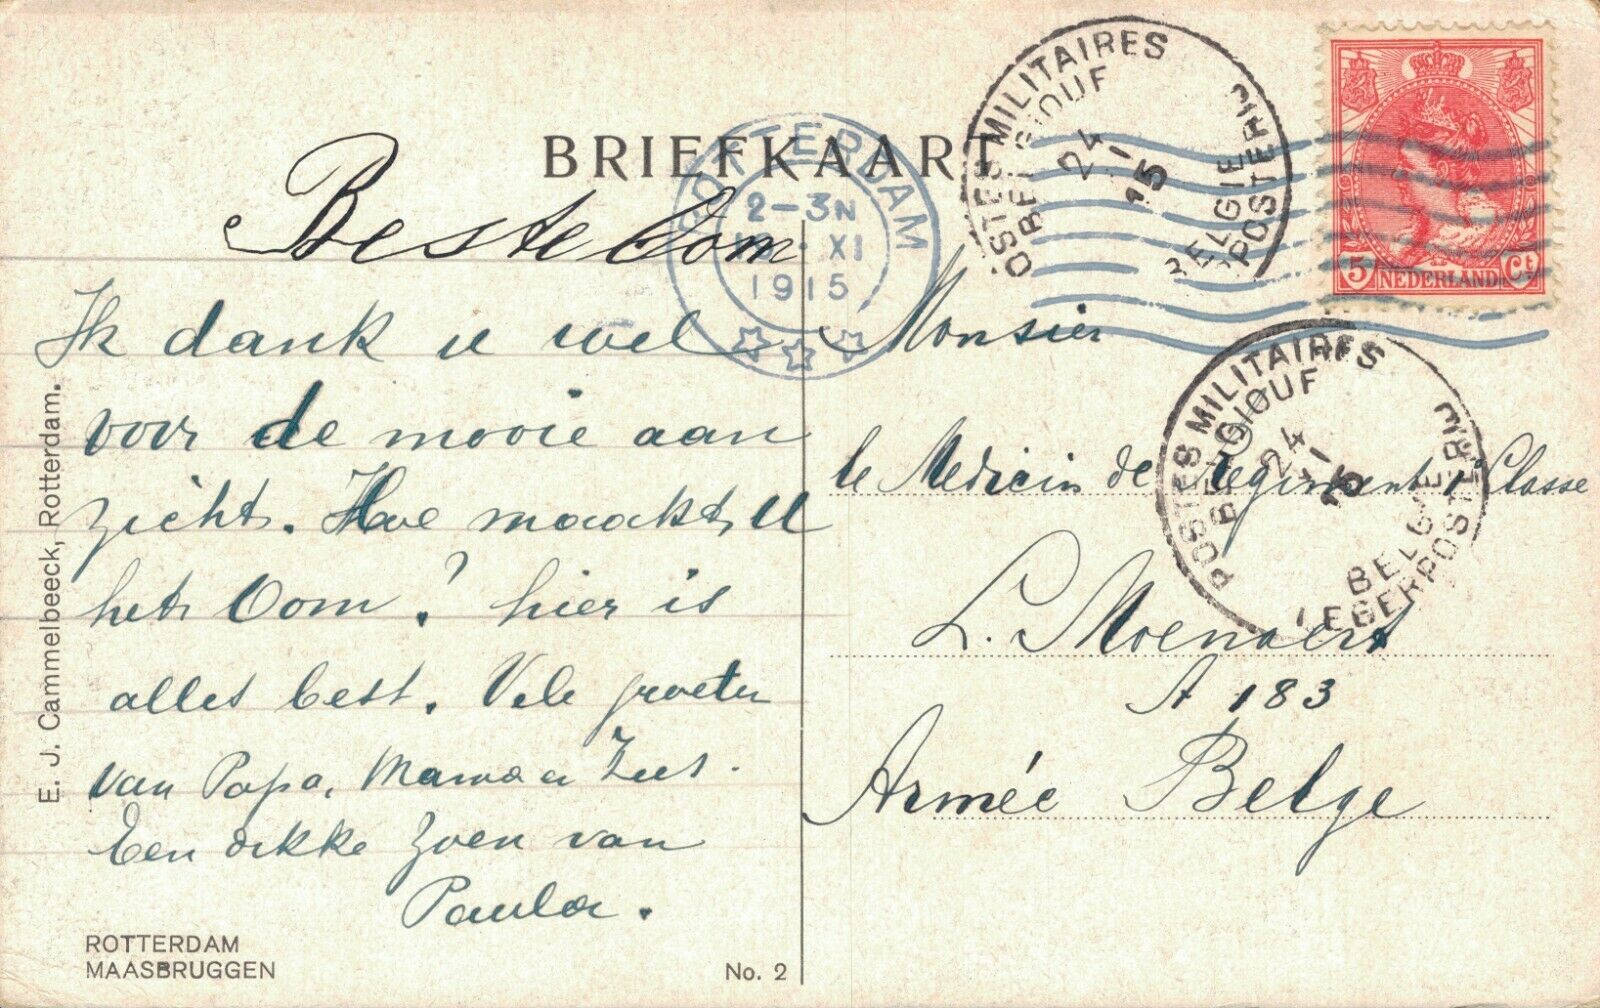 BRIEFKAART
Beste Oom
Ik dank u wel
voor de mooie aan
zicht. Hoe maakt U
het Oom? hier is
alles best. Vele groeten
van Papa, Mama
Een dikke zoen van
Paula.
E. J. Cammelbeeck, Rotterdam.
ROTTERDAM
MAASBRUGGEN
No. 2
ROTTERDAM
2-3N
XI
1915
POSTES MILITAIRES
BELGIQUE
24
XI
15
BELGIE
LEGERPOSTERIJ
5 NEDERLAND Ct
Monsier
le Medicin de Regiment 1e Classe
L. Moenaert
A 183
Armée Belge
POSTES MILITAIRES
BELGIQUE
24
XI
15
BELGIE
LEGERPOSTERIJ